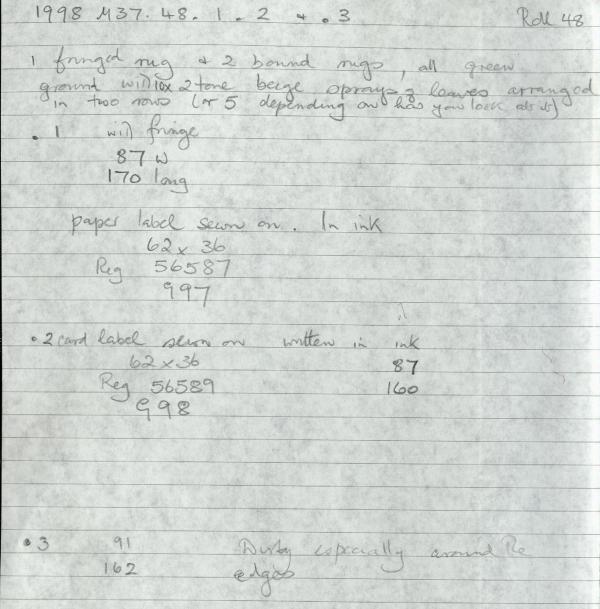 1998 M37. 48. 1. 2 + .3 Roll 48
1 fringed rug + 2 bound rugs, all green
ground with 10x 2 tone beige sprays of leaves arranged
in two rows (or 5 depending on how you look at it)
.1 with fringe
87 W
170 long
paper label sewn on. In ink
62 x 36
Reg 56587
997
.2 card label sewn on written in ink
62 x 36 87
Reg 56589 160
998
.3 91 Dusty especially around the
162 edges